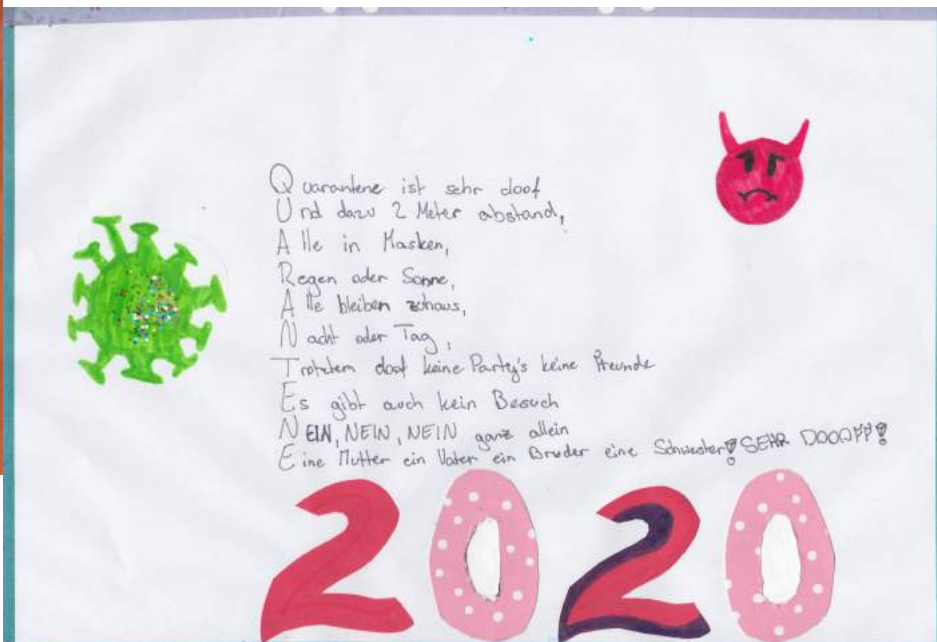 Quarantene ist sehr doof
Und dazu 2 Meter abstand,
Alle in Masken,
Regen oder Sonne,
Alle bleiben zuhaus,
Nacht oder Tag,
Trotztem doof keine Party's keine Freunde
Es gibt auch kein Besuch
NEIN, NEIN, NEIN ganz allein
Eine Mutter ein Vater ein Bruder eine Schwester! SEHR DOOOFF!
2020